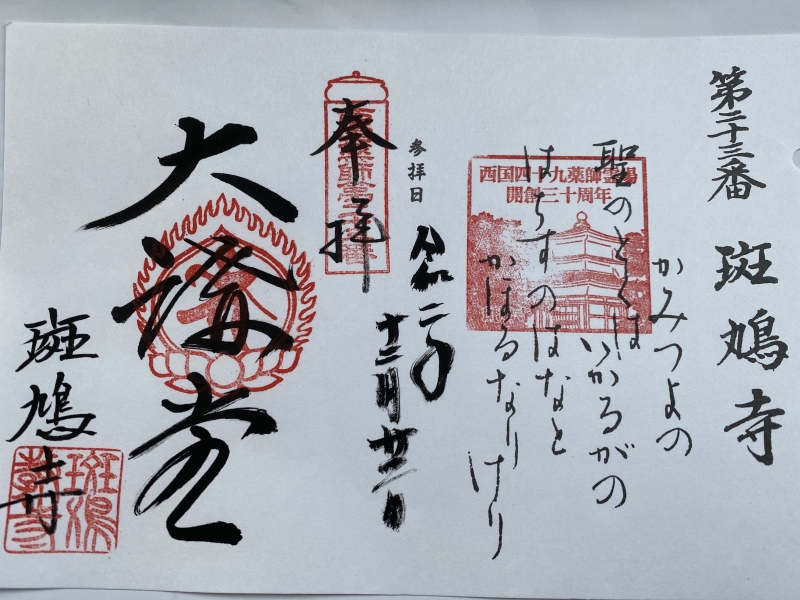 第二十三番 斑鳩寺
かみつよの
聖のとくは いかるがの
はちすのはなと
かほるなりけり
西国四十九薬師霊場
開創三十周年
参拝日
令和二年
十二月廿二日
奉拝
大講堂
斑鳩寺